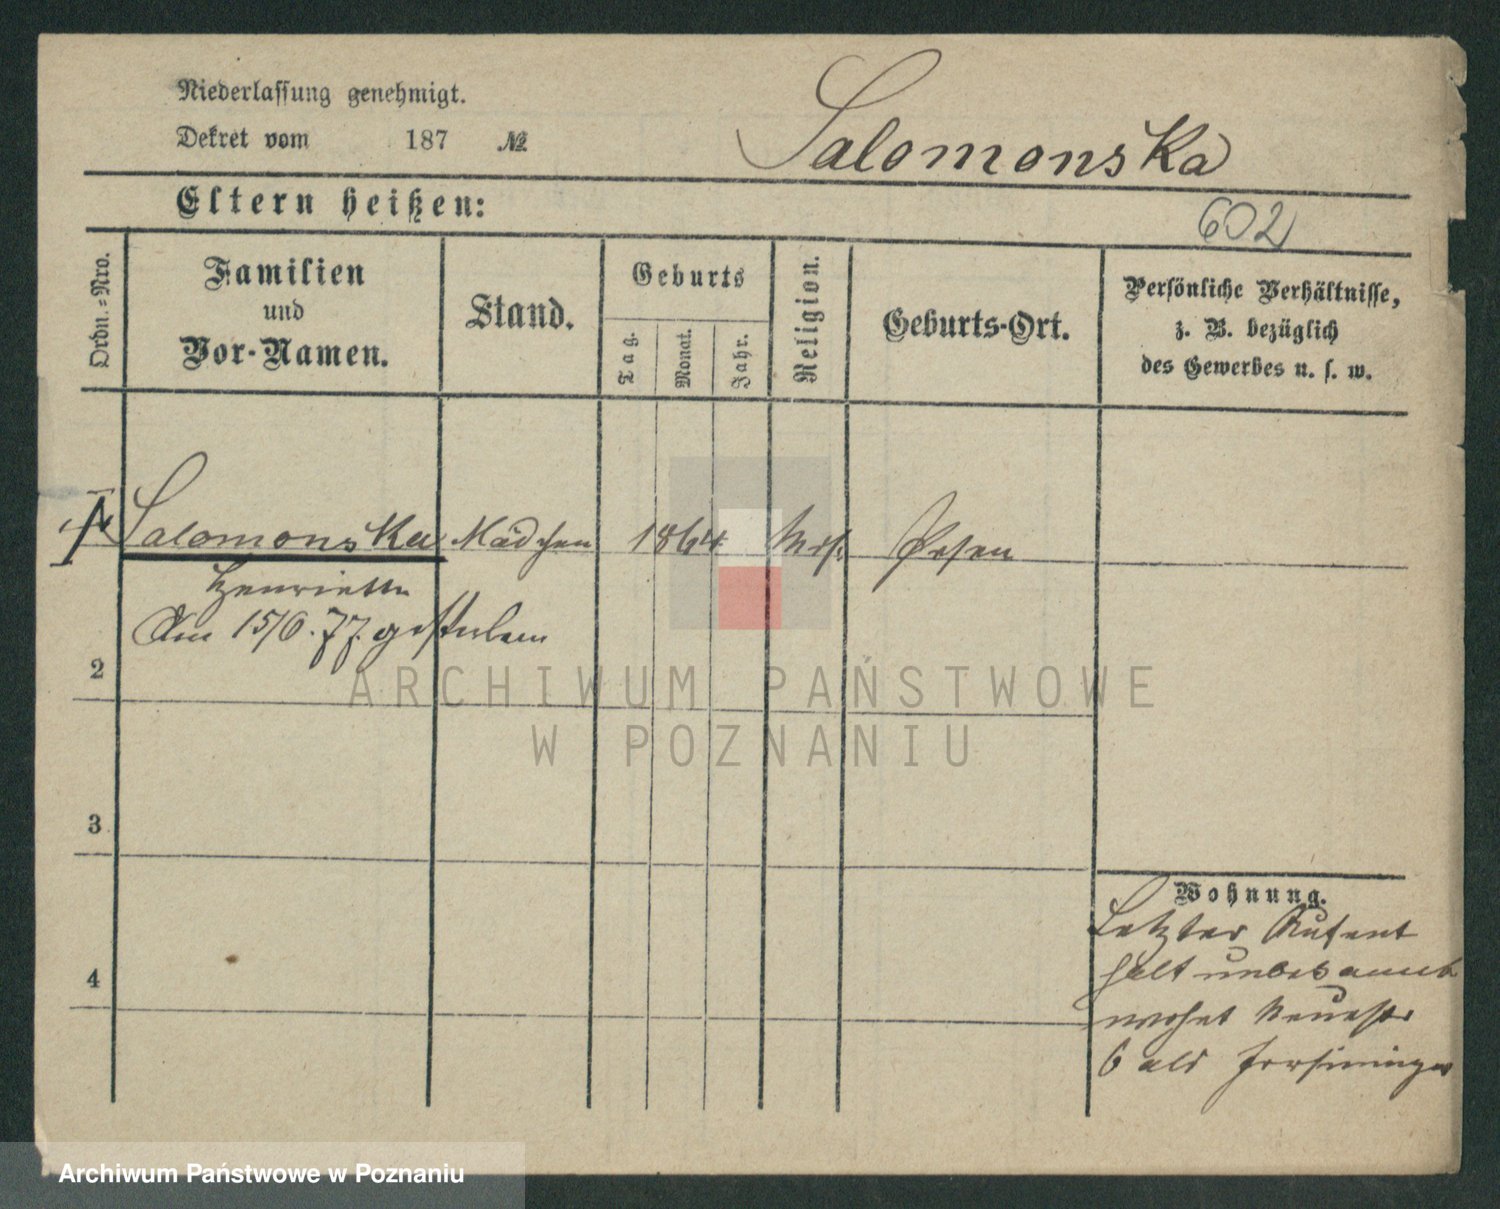 Niederlassung genehmigt.
Dekret vom 187 №
Salomonska
Eltern heißen:
602
Ordn.=Nro.
Familien
und
Vor-Namen.
Stand.
Geburts
Tag.
Monat.
Jahr.
Religion.
Geburts-Ort.
Persönliche Verhältnisse,
z. B. bezüglich
des Gewerbes u. s. w.
Salomonska Mädchen 1864 Mos. Posen
Henriette
Am 15/6. 77. gestorben
2
3
4
Wohnung.
Letzter Aufent
halt unbekannt
wohnt Neuestr
6 als
ARCHIWUM PAŃSTWOWE
W POZNANIU
Archiwum Państwowe w Poznaniu